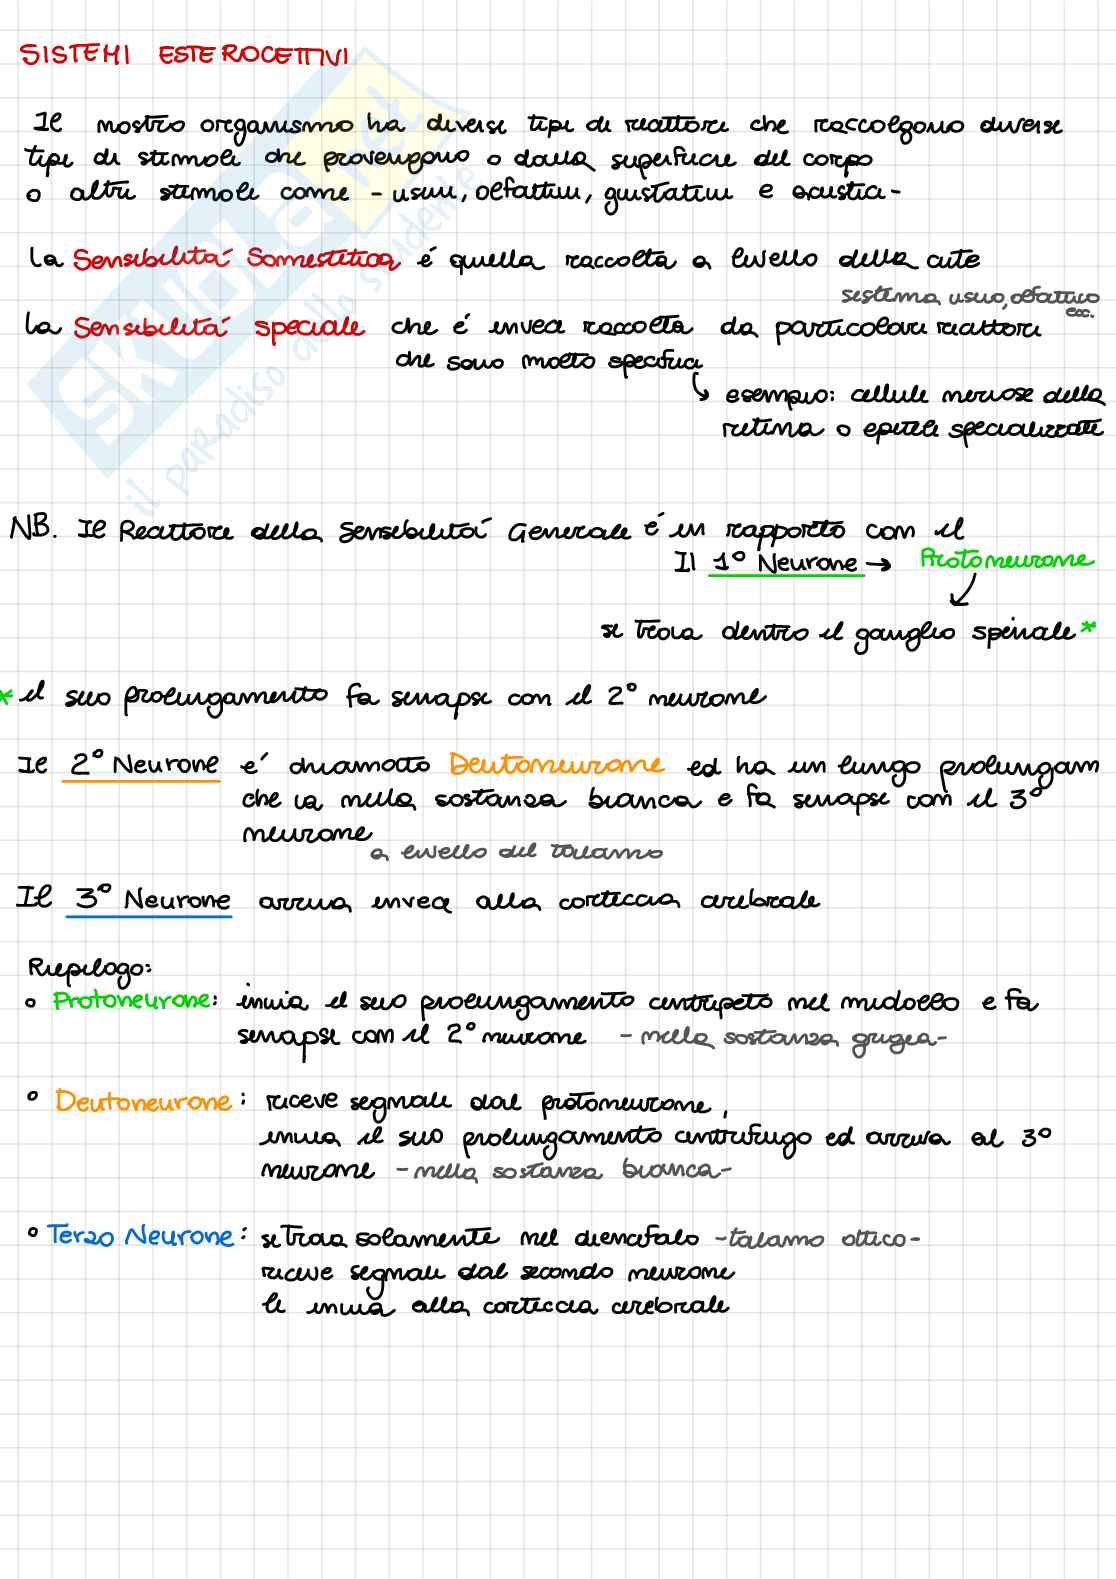 SISTEMI ESTEROCETTIVI
Il nostro organismo ha diversi tipi di recettori che raccolgono diversi
tipi di stimoli che provengono o dalla superficie del corpo
o altri stimoli come - visivi, olfattivi, gustativi e acustici -
La Sensibilità Somestetica è quella raccolta a livello della cute
sistema visivo, olfattivo
ecc.
La Sensibilità speciale che è invece raccolta da particolari recettori
che sono molto specifici
↳ esempio: cellule nervose della
retina o epiteli specializzati
NB. Il Recettore della Sensibilità Generale è in rapporto con il
Il 1° Neurone → Protoneurone
si trova dentro il ganglio spinale *
* il suo prolungamento fa sinapsi con il 2° neurone
Il 2° Neurone è chiamato Deutoneurone ed ha un lungo prolungam
che va nella sostanza bianca e fa sinapsi con il 3°
neurone
a livello del talamo
Il 3° Neurone arriva invece alla corteccia cerebrale
Riepilogo:
• Protoneurone: invia il suo prolungamento centripeto nel midollo e fa
sinapsi con il 2° neurone - nella sostanza grigia -
• Deutoneurone: riceve segnali dal protoneurone,
invia il suo prolungamento centrifugo ed arriva al 3°
neurone - nella sostanza bianca -
• Terzo Neurone: si trova solamente nel diencefalo - talamo ottico -
riceve segnali dal secondo neurone
li invia alla corteccia cerebrale
SKUOLA.net
il paradiso dello studente